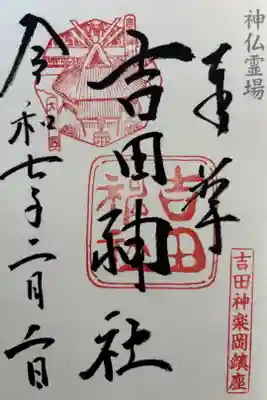 神仏霊場
奉拝
吉田神社
吉田神社
令和七年二月二日
吉田神楽岡鎮座